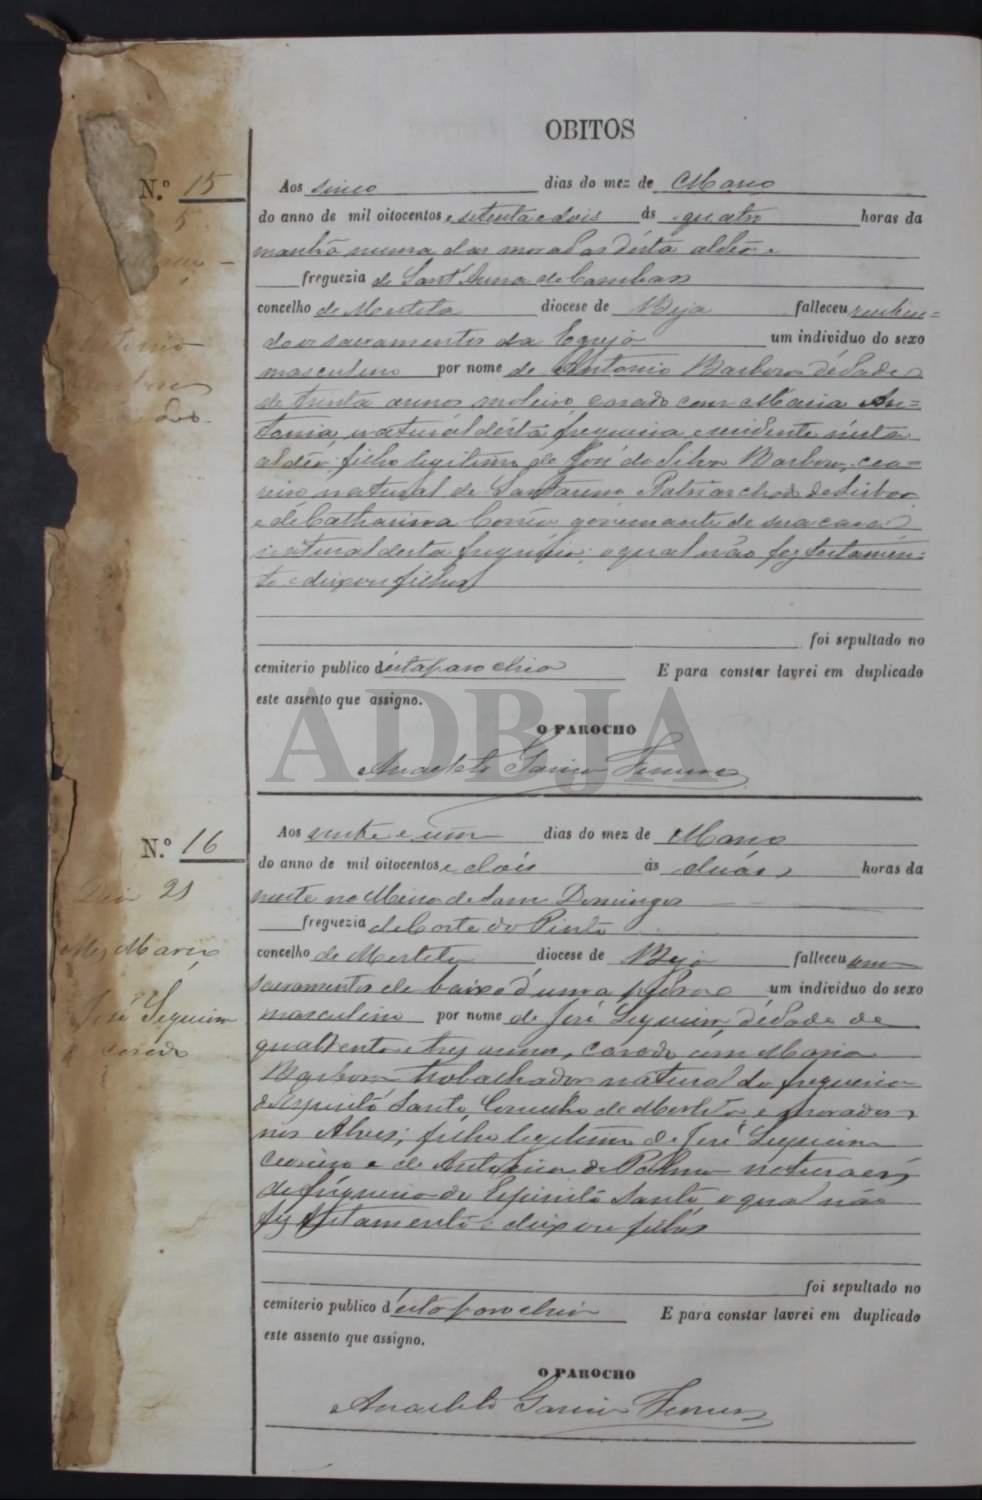 OBITOS
N.º 15
5
Aos sinco dias do mez de Março
do anno de mil oitocentos e setenta e dois ás quatro horas da
manhã numa das moradas désta aldêa
freguezia de Sant'Anna de Cambas
concelho de Mertola diocese de Beja falleceu
sacramentos da Egreja um individuo do sexo
masculino por nome de Antonio Barbosa dédade
de trinta annos moleiro casado com Maria An=
tonia natural désta freguezia e residente nésta
aldêa filho legitimo de José da Silva Barbosa
natural de Santarem Patriarchado de Lisboa
e de Catharina governante de sua casa
natural desta freguezia; o qual não fez testamen=
to e deixou filhos
foi sepultado no
cemiterio publico d'esta parochia E para constar lavrei em duplicado
este assento que assigno.
O PAROCHO
Anacleto Garcia
ADBJA
N.º 16
Dia 21
Mez Março
José Sequeira
casado
Aos vinte e um dias do mez de Março
do anno de mil oitocentos e dois ás duas horas da
noute na Mina de Sam Domingos
freguezia de Corte do Pinto
concelho de Mertola diocese de Beja falleceu sem
sacramentos de baixo d'uma pedra um individuo do sexo
masculino por nome de José Sequeira, dédade de
quarenta e tres annos, casado com Maria
Barbosa trabalhador natural da freguezia
d'Espirito Santo, Concelho de Mertola, e morador
nos Alves; filho legitimo de José Sequeira
e de Antonia de Palma naturaes
da freguezia de Espirito Santo o qual não
fez testamento e deixou filhos
foi sepultado no
cemiterio publico d'esta parochia E para constar lavrei em duplicado
este assento que assigno.
O PAROCHO
Anacleto Garcia